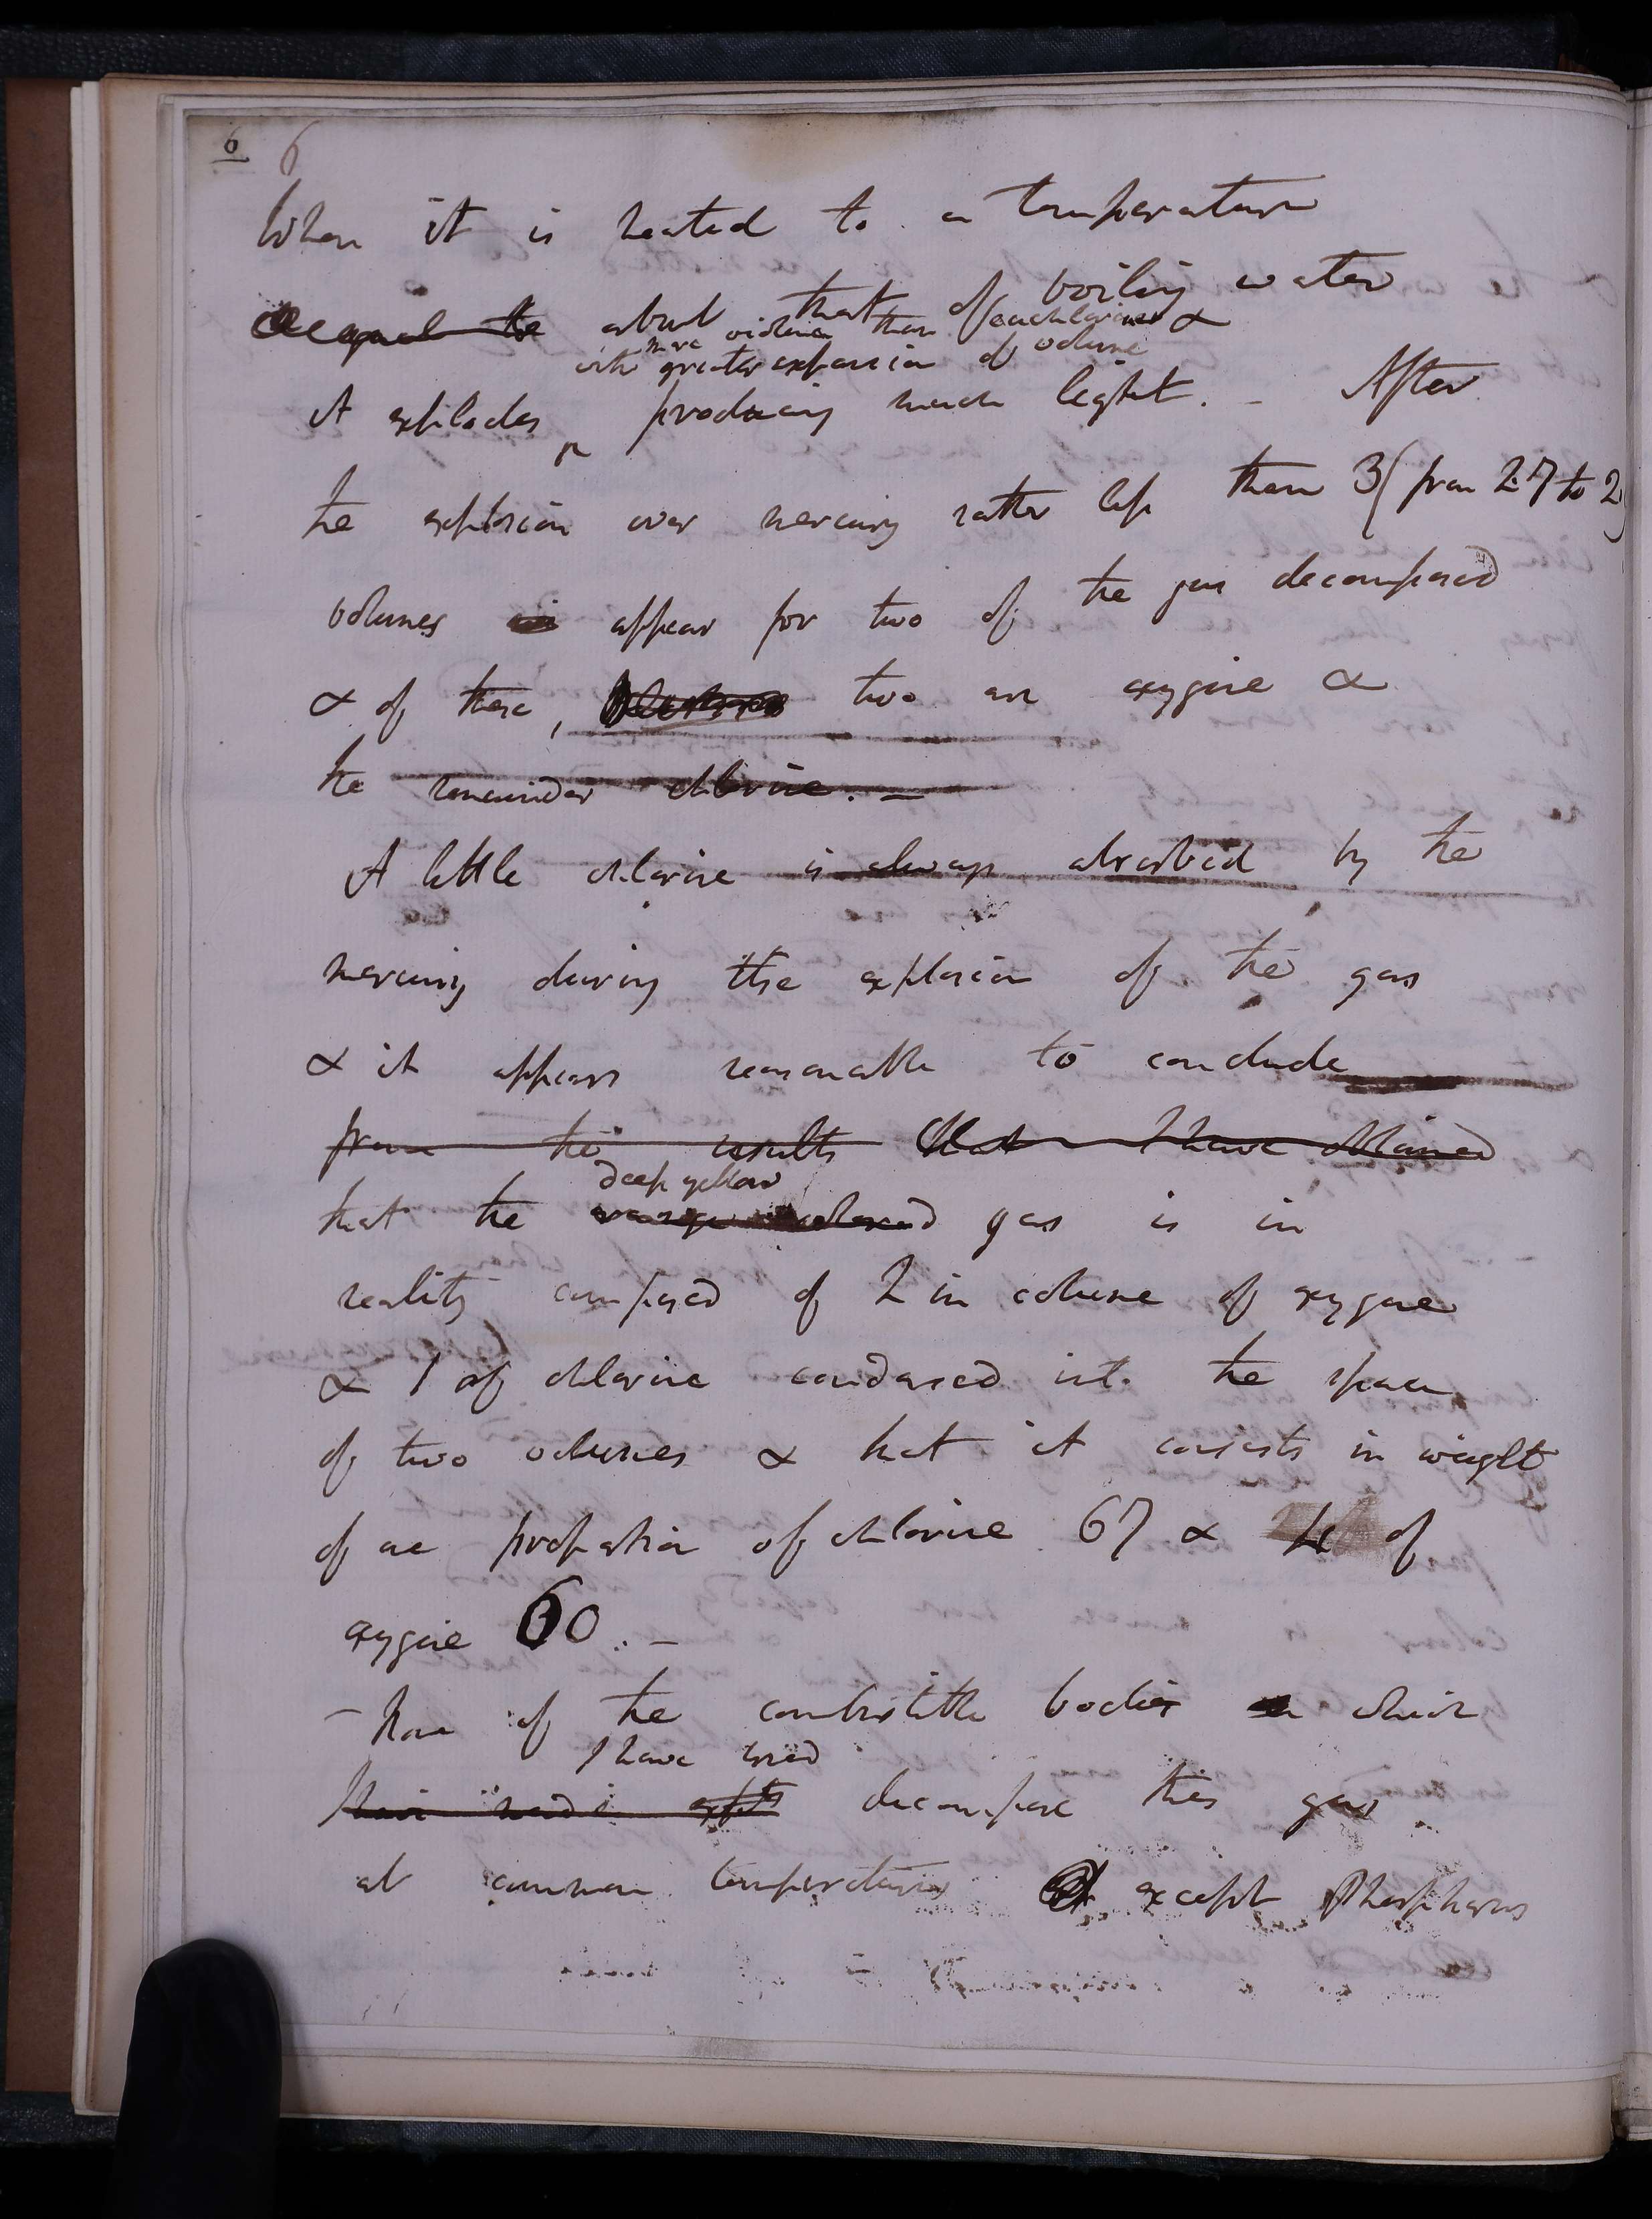 6 6
When it is heated to a temperature
equal to about that of boiling water
more violence than euchlorine &
with greater expansion of volume
it explodes producing much light. - After
the explosion over mercury rather less than 3 (from 2.7 to 2
volumes appear for two of the gas decomposed
& of these, two are oxygene &
the remainder chlorine. -
A little chlorine is always absorbed by the
mercury during the explosion of the gas
& it appears reasonable to conclude
from the results that I have obtained
deep yellow
that the orange coloured gas is in
reality composed of 2 in volume of oxygene
& 1 of chlorine condensed into the space
of two volumes & that it consists in weight
of one proportion of chlorine 67 & 4 of
oxygene 60. -
- None of the combustible bodies which
I have tried
have used in expts decompose this gas
at common temperatures except Phosphorus